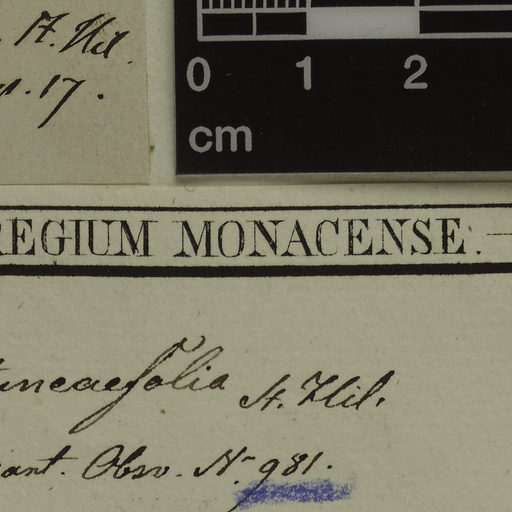 St. Hil.
p. 17.
0 1 2
cm
REGIUM MONACENSE.
uncaefolia St. Hil.
ant. Obsv. Nr 981.